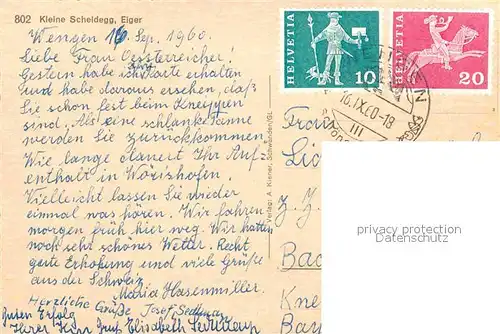 802 Kleine Scheidegg, Eiger
Wengen 16. Sep. 1960.
Liebe Frau Oesterreicher!
Gestern habe ich Karte erhalten
und habe daraus ersehen, daß
Sie schon fest beim Kneippen
sind. Als eine schlanke Tanne
werden Sie zurückkommen.
Wie lange dauert Ihr Auf-
enthalt in Wörishofen.
Vielleicht lassen Sie wieder
einmal was hören. Wir fahren
morgen früh hier weg. Wir hatten
noch sehr schönes Wetter. Recht
gute Erholung und viele Grüße
aus der Schweiz
Maria Hasenmiller.
Herzliche Grüße Josef
Guten Erfolg
Ihrer Kur Gruß Elisabeth
Verlag: A. Kisner, Schwanden/Gl.
HELVETIA 10
HELVETIA 20
16.IX.60-18
III
Frau
Z. Z.
Bad
privacy protection
Datenschutz